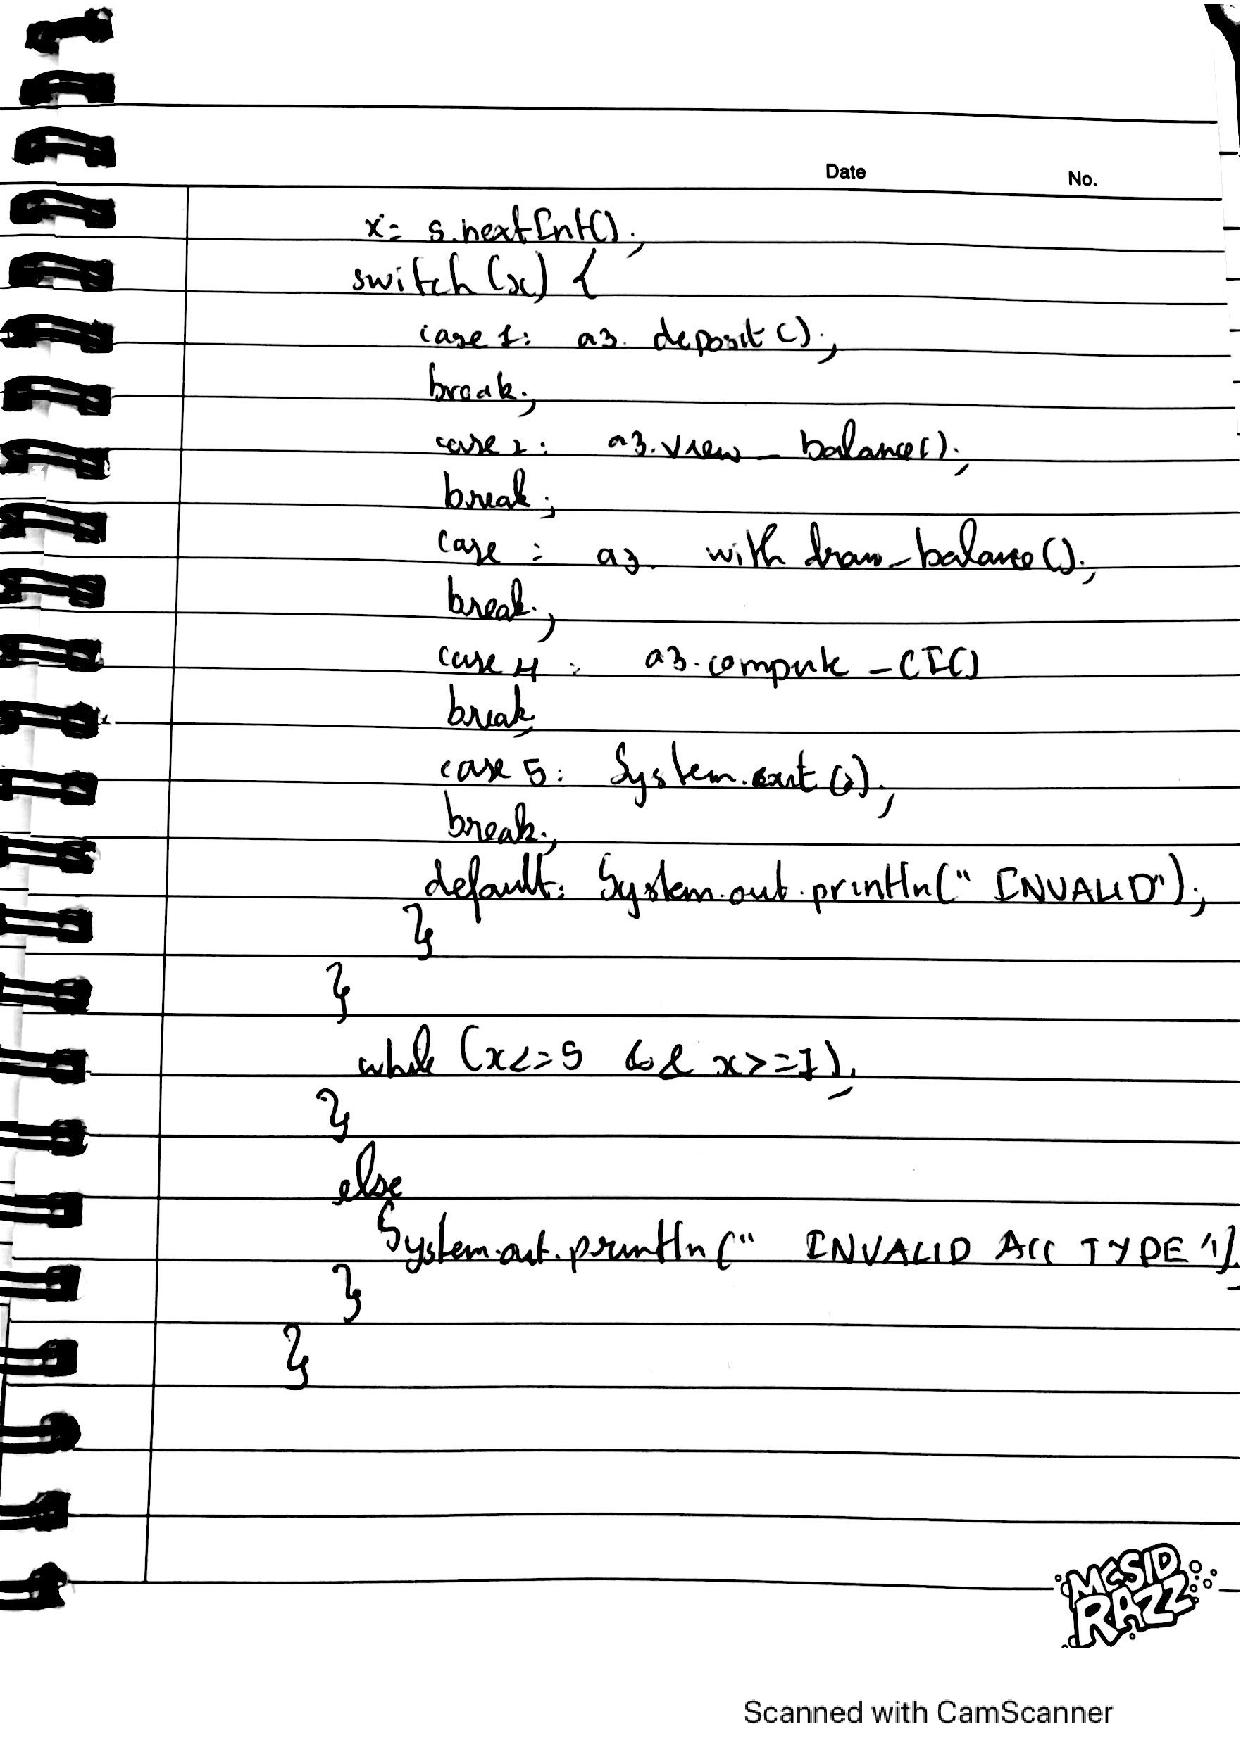 Date No.
x= s.nextInt();
switch (x) {
case 1: a3. deposit ();
break;
case 2: a3.view_balance();
break;
case : a3. with draw_balance();
break;
case 4 : a3.compute_CI()
break
case 5: System.exit(0);
break;
default: System.out.println(" INVALID");
}
}
while (x<=5 && x>=1);
}
else
System.out.println(" INVALID ACC TYPE")
}
}
MCSID
RAZZ
Scanned with CamScanner